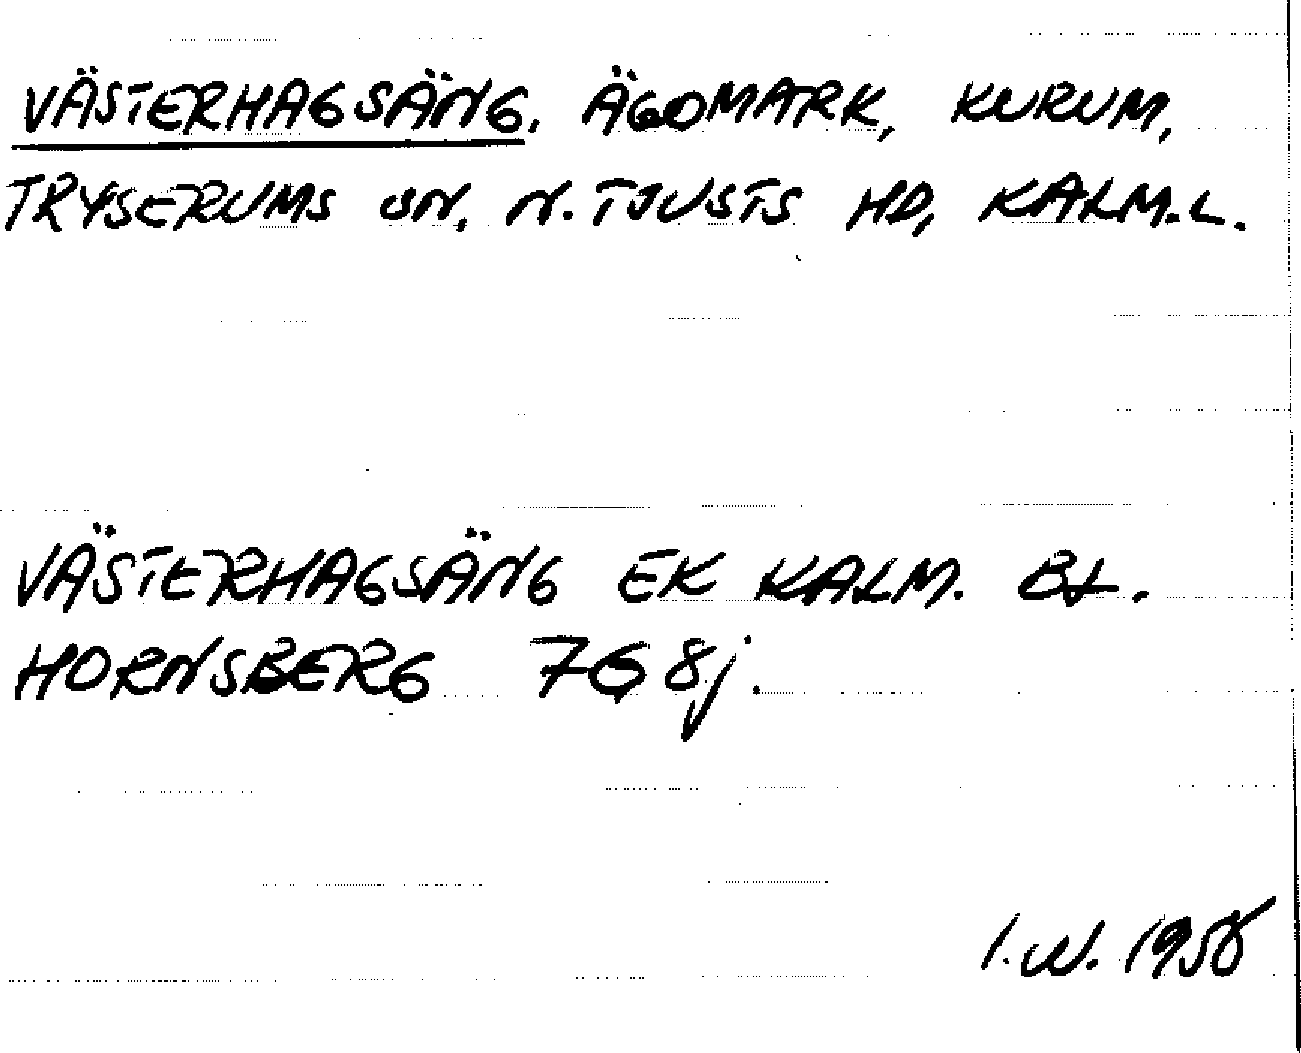 VÄSTERHAGSÄNG, ÄGOMARK, KURUM,
TRYSERUMS SN, N. TJUSTS HD, KALM.L.
VÄSTERHAGSÄNG EK KALM. BL.
HORNSBERG 768j.
I.W. 1956